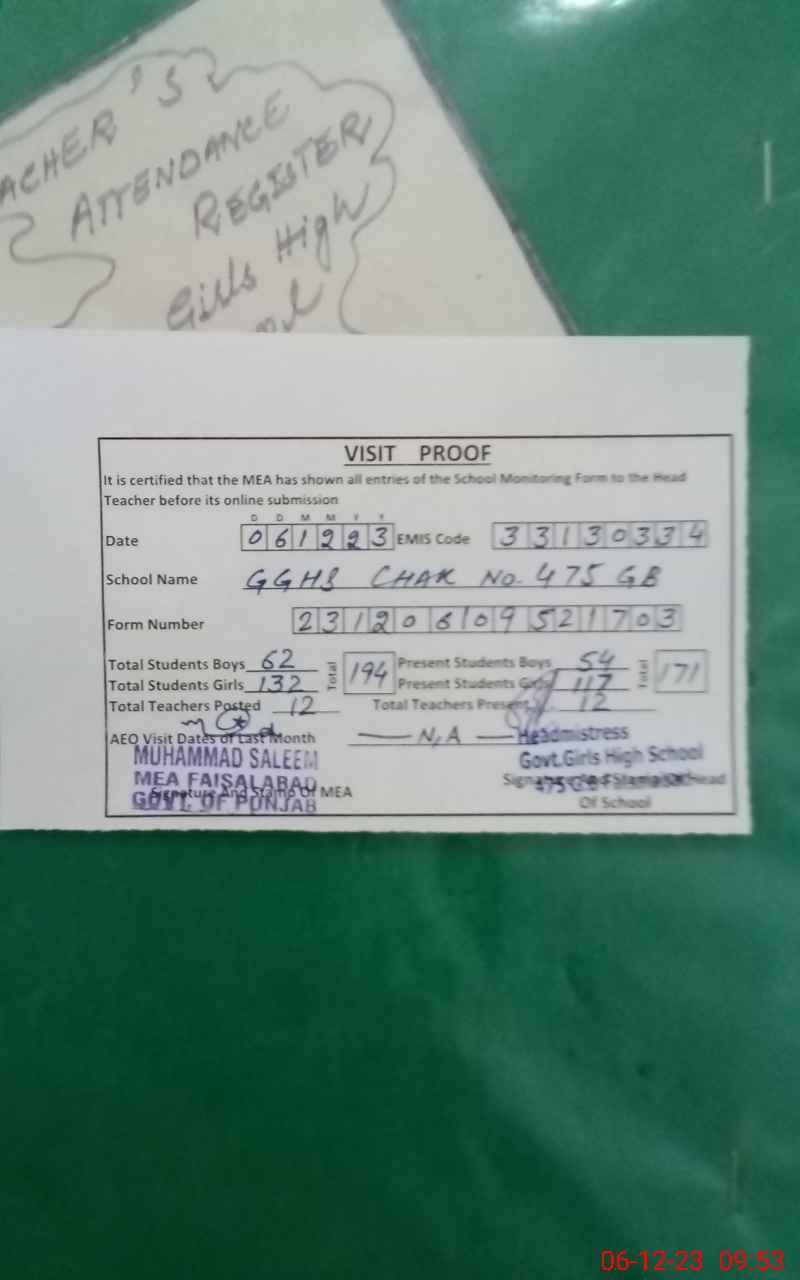 ACHER'S
ATTENDANCE
REGISTER
Girls High
VISIT PROOF
It is certified that the MEA has shown all entries of the School Monitoring Form to the Head
Teacher before its online submission
D D M M Y Y
Date 061223 EMIS Code 33130334
School Name GGHS CHAK No. 475 GB
Form Number 231206109521703
Total Students Boys 62 Total 194 Present Students Boys 54 Total 171
Total Students Girls 132 Present Students Girls 117
Total Teachers Posted 12 Total Teachers Present 12
AEO Visit Dates of Last Month N,A
Headmistress
MUHAMMAD SALEEM
Govt.Girls High School
MEA FAISALABAD
475 G.B
GOVT. OF PUNJAB
Signature And Stamp Of MEA
Signature And Stamp Of Head
Of School
06-12-23 09:53